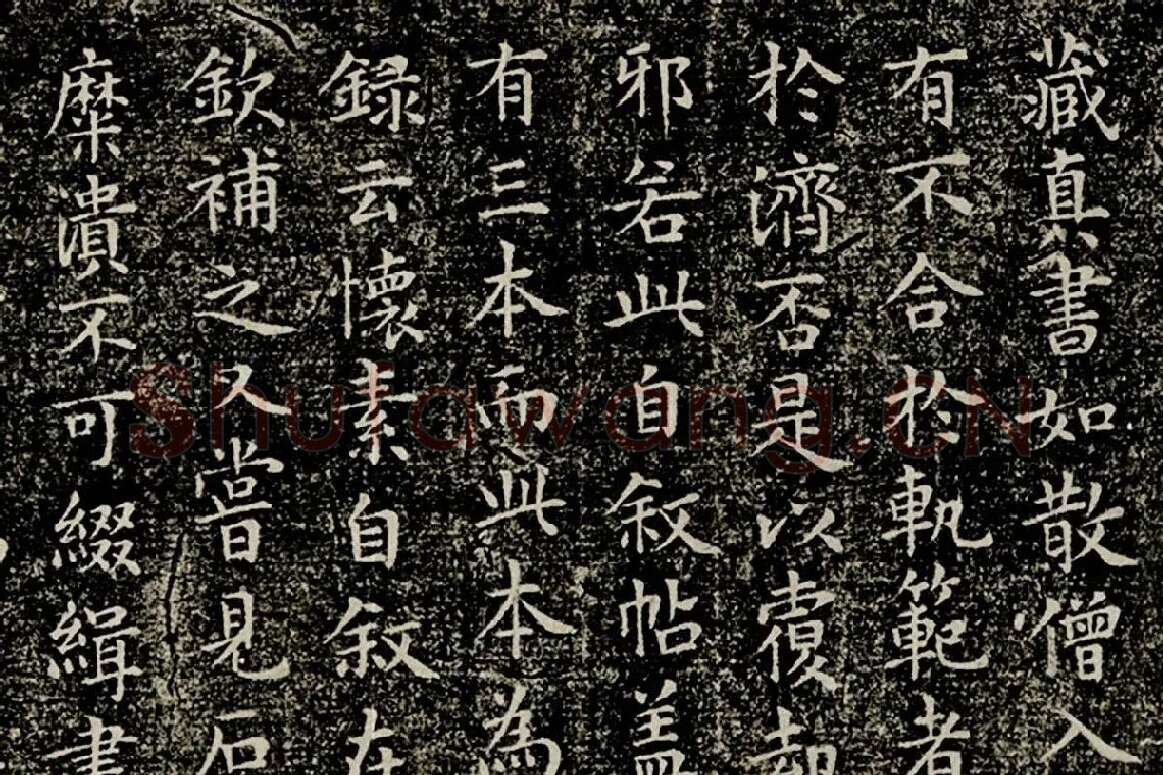 藏真書如散僧入
有不合於軌範者
於濟否是以覆却
邪若此自叙帖蓋
有三本而此本為
録云懷素自叙在
欽補之又嘗見石
糜潰不可綴緝書
Shufawang.CN